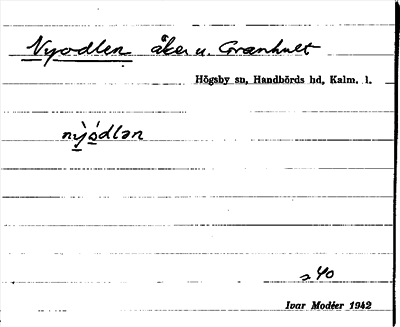 Nyodlen åker u. Granhult
Högsby sn, Handbörds hd, Kalm. l.
nỳódlən
a 40
Ivar Modéer 1942